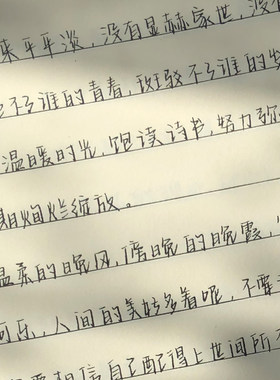 来平平淡淡,没有显赫家世,没有
不了谁的青春,斑驳不了谁的发
温暖时光,饱读诗书,努力弥
期绚烂绽放。
温柔的晚风,傍晚的晚霞,
可乐,人间的美好多着呢,不要
要相信自己配得上世间所